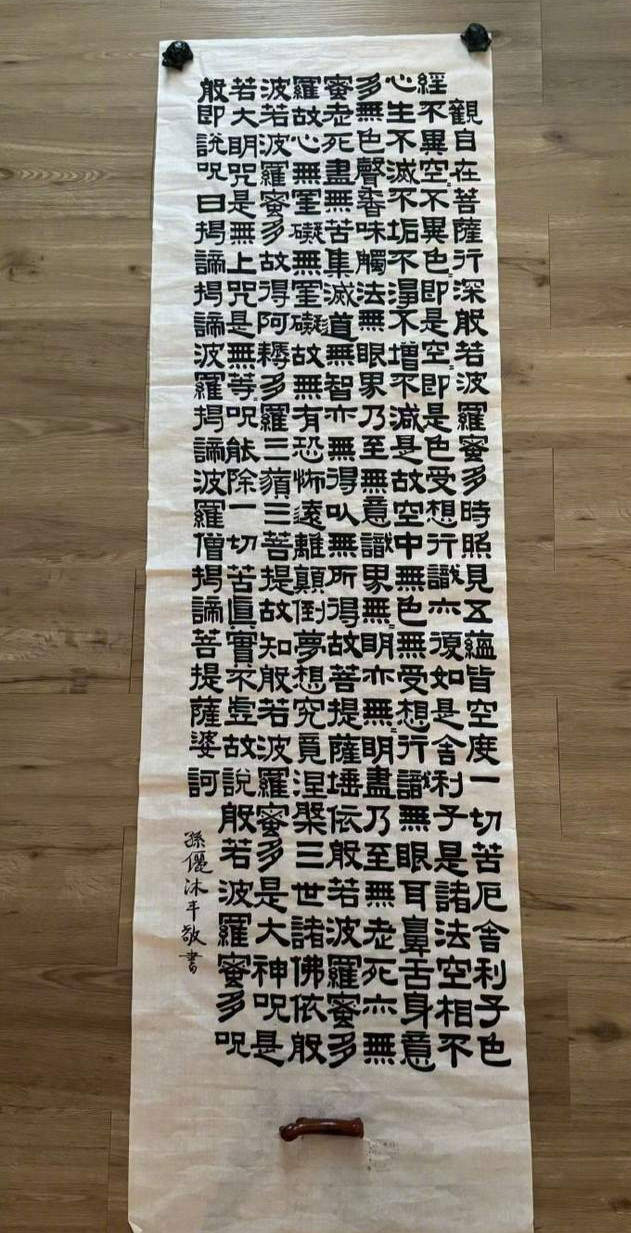 般若波羅蜜多心經
觀自在菩薩行深般若波羅蜜多時照見五蘊皆空度一切苦厄舍利子色
不異空〻不異色〻即是空〻即是色受想行識亦復如是舍利子是諸法空相不
生不滅不垢不淨不增不減是故空中無色無受想行識無眼耳鼻舌身意
無色聲香味觸法無眼界乃至無意識界無〻明亦無〻明盡乃至無老死亦無
老死盡無苦集滅道無智亦無得以無所得故菩提薩埵依般若波羅蜜多
故心無罣礙無罣礙故無有恐怖遠離顛倒夢想究竟涅槃三世諸佛依般
若波羅蜜多故得阿耨多羅三藐三菩提故知般若波羅蜜多是大神咒是
大明咒是無上咒是無等〻咒能除一切苦真實不虛故說般若波羅蜜多咒
即說咒曰揭諦揭諦波羅揭諦波羅僧揭諦菩提薩婆訶
孫儷沐手敬書